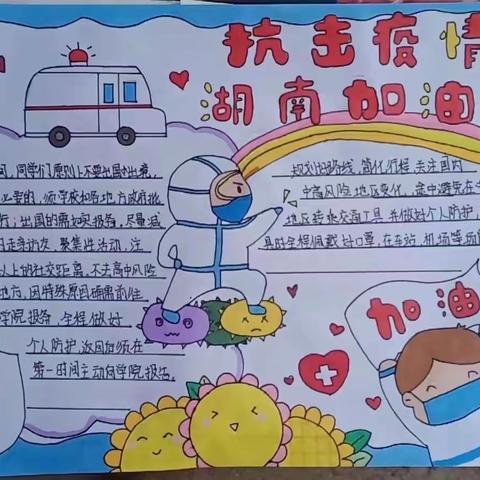 抗击疫情
湖南加油
间,同学们原则上不要出国出境,
必要的,须学校和各地方政府批
行;出国的需如实报告,尽量减
日走亲访友、聚集性活动,注
以上的社交距离,不去高中风险
地方,因特殊原因确需前往
学院报备,全程做好
个人防护,返回后须在
第一时间主动向学院报告。
规划出路线,简化行程,关注国内
中高风险地区变化,途中避免在
地区转乘交通工具,并做好个人防护,
具时全程佩戴好口罩,在车站、机场等场
加油